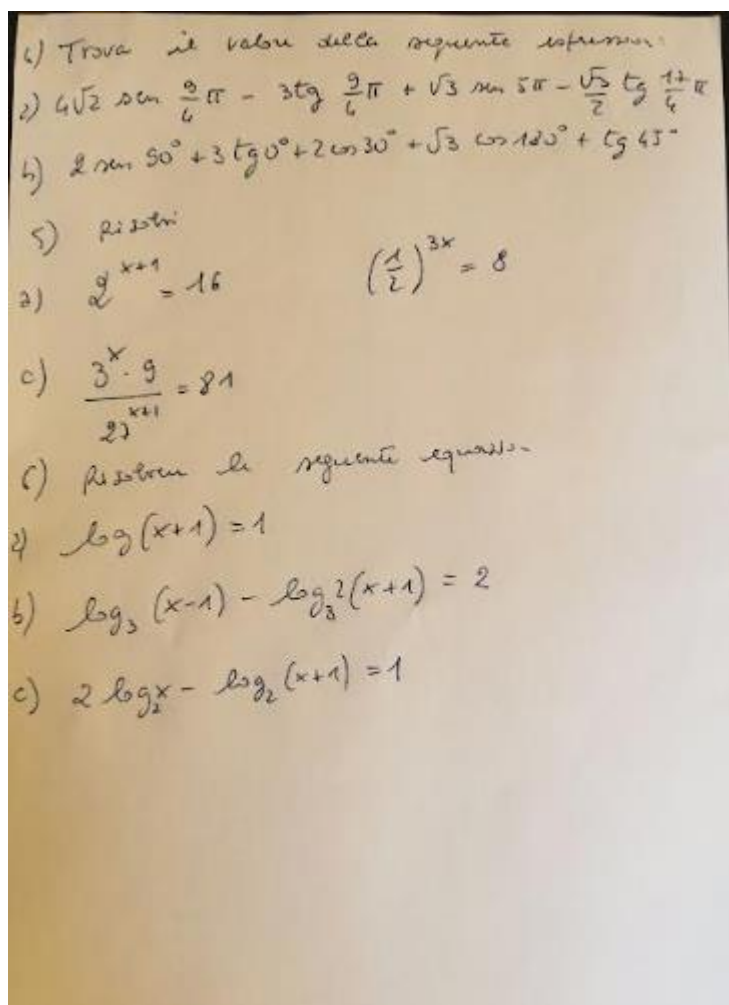 4) Trova il valore della seguente espressione
a) 4√2 sen 9/4 π - 3tg 9/4 π + √3 sen 5π - √3/2 tg 17/4 π
b) 2 sen 90° + 3 tg 0° + 2 cos 30° + √3 cos 180° + tg 45°
5) Risolvi
a) 2^(x+1) = 16 (1/2)^(3x) = 8
c) (3^x · 9)/(27^(x+1)) = 81
6) Risolvere le seguente equazioni
a) log(x+1) = 1
b) log₃(x-1) - log₃2(x+1) = 2
c) 2 log₂x - log₂(x+1) = 1